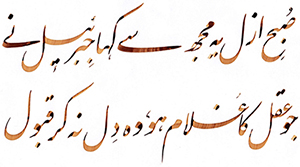 صُبحِ ازل یہ مجھ سے کہا جبرئیل نے
جو عقل کا غلام ہو، وہ دِل نہ کر قبول